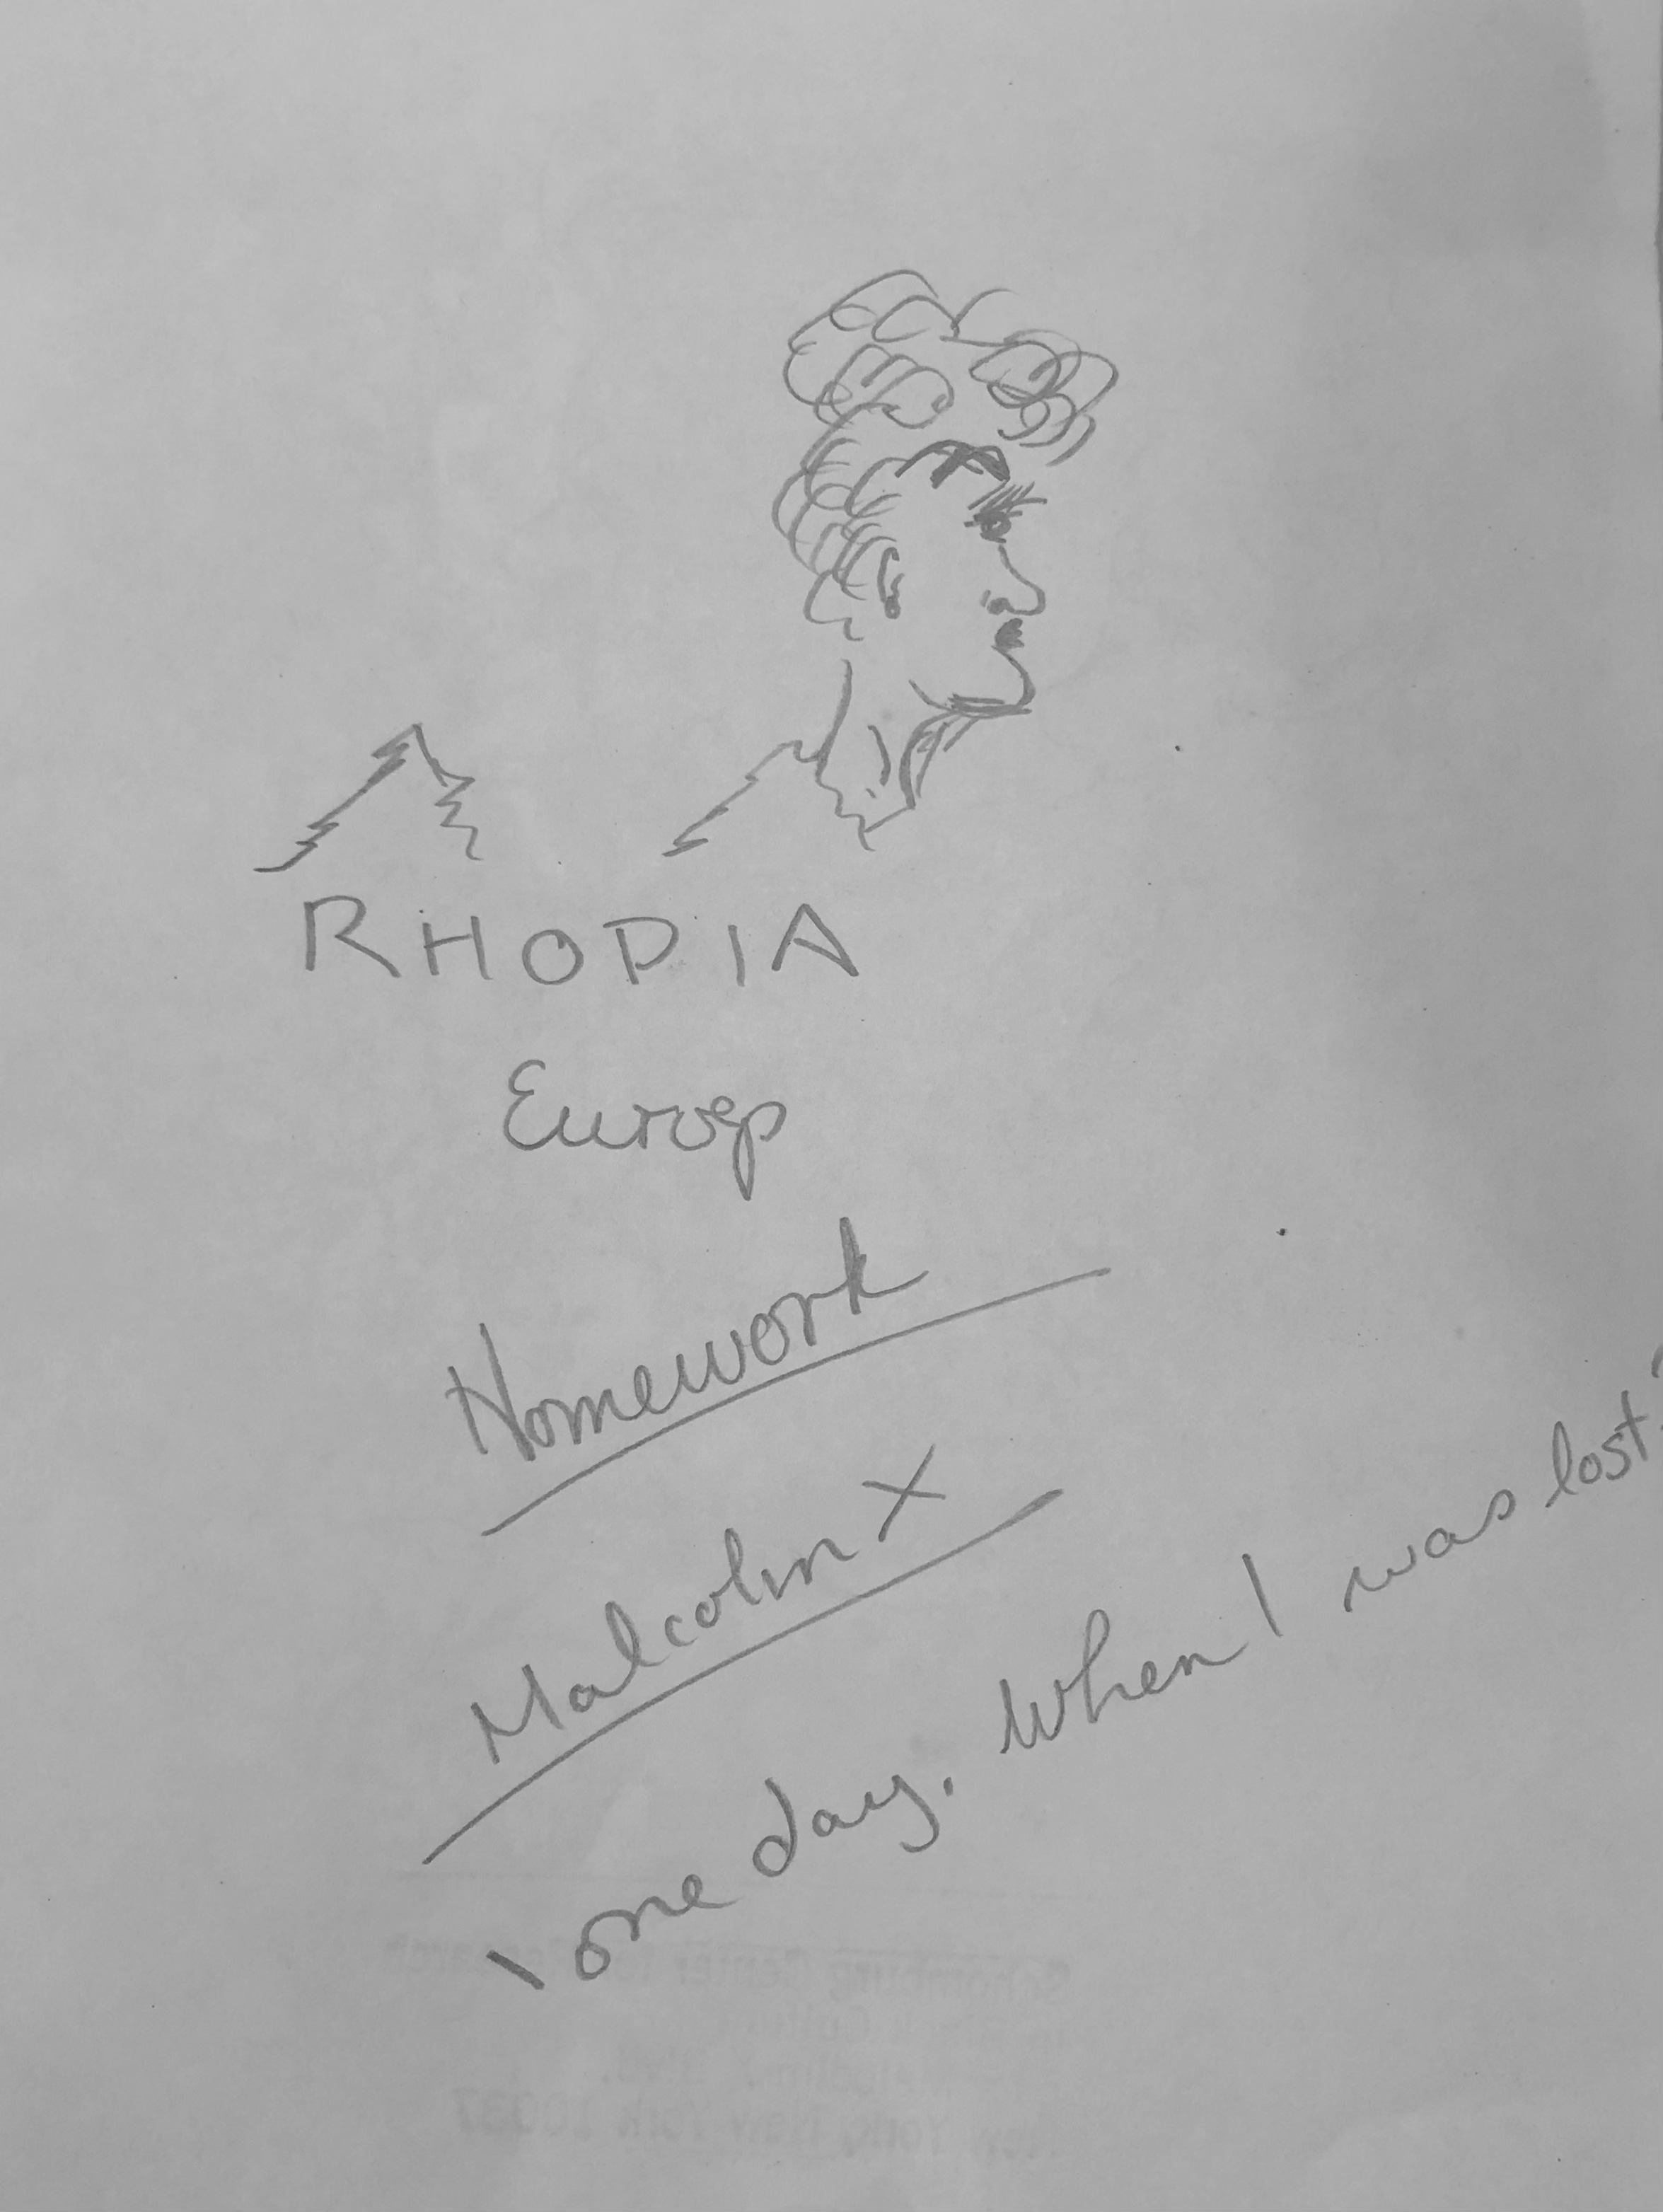 RHODIA
Europ
Homework
Malcolm X
one day. When I was lost
Schomburg Center for Research
Culture
Malcolm X Blvd.
New York, New York 10037